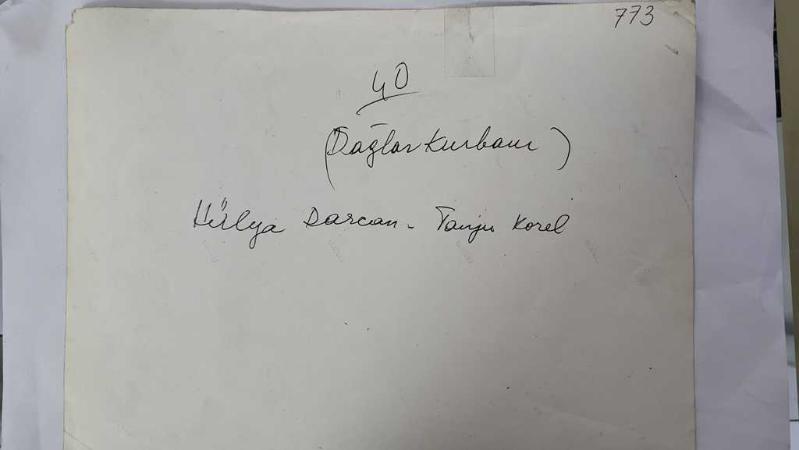 773
40
(Dağlar Kurbanı)
Hülya Darcan - Tanju Korel